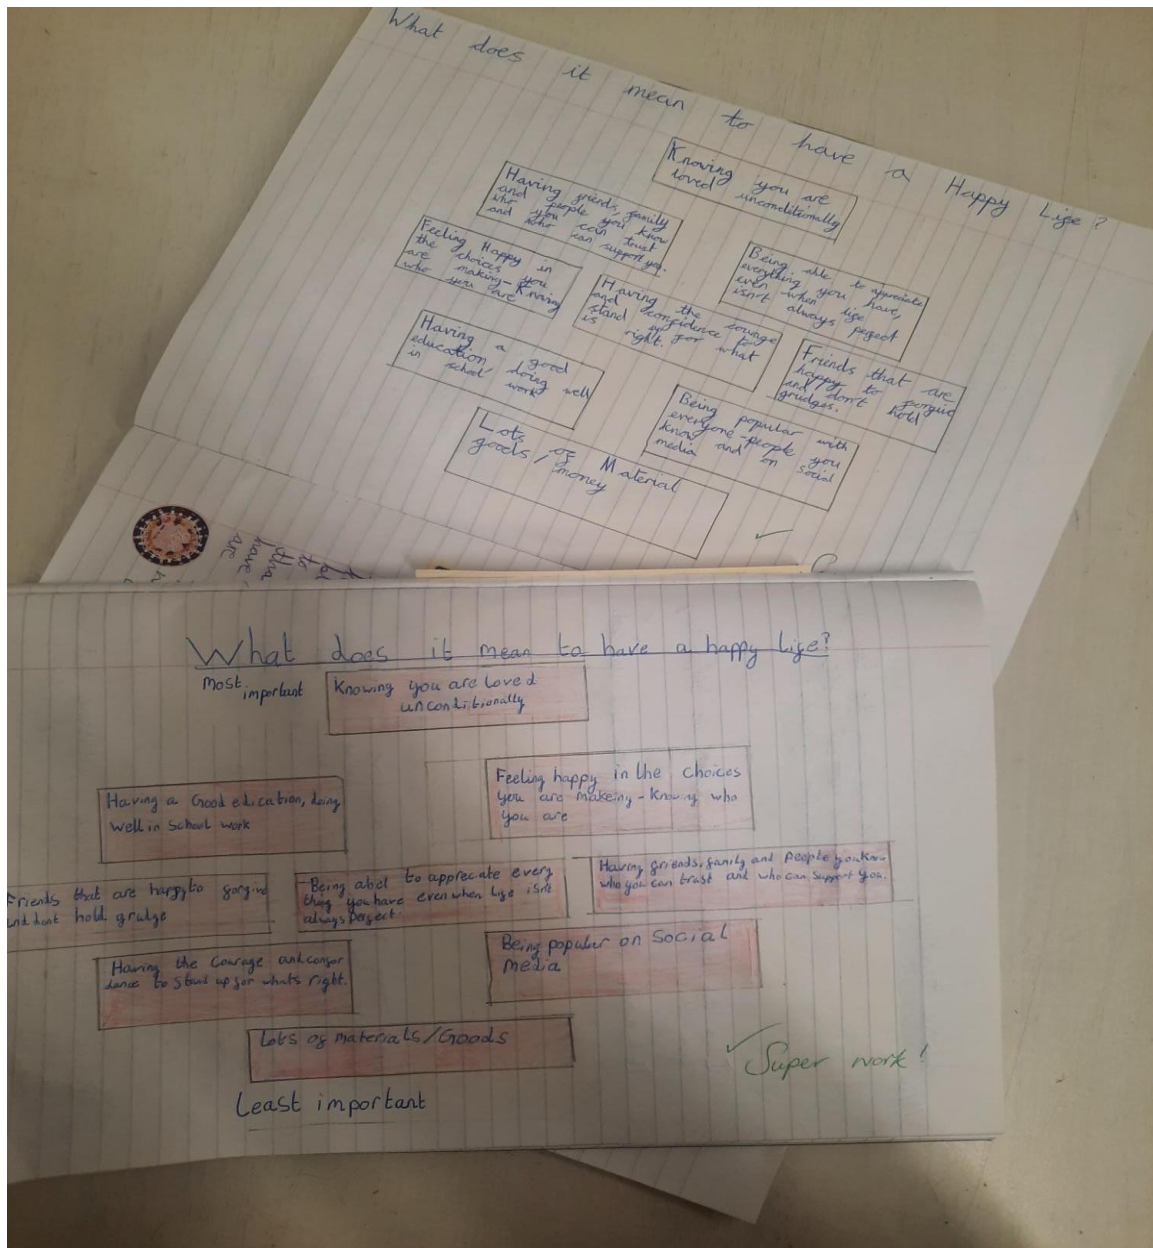 What does it mean to have a Happy Life?
Knowing you are
loved unconditionally
Having friends, family
and people you know
who you can trust
and who can support you.
Being able to appreciate
everything you have,
even when life
isn't always perfect
Feeling Happy in
the choices you
are making - Knowing
who you are
Having the courage
and confidence to
stand up for what
is right.
Friends that are
happy to forgive
and don't hold
grudges.
Having a good
education, doing well
in school work
Being popular with
everyone - people you
know and on social
media
Lots of Material
goods / money
have
are
What does it mean to have a happy Life?
Most important
Knowing you are loved
unconditionally
Having a Good edication, doing
well in School work
Feeling happy in the choices
you are makeing - Knowing who
you are
Friends that are happy to forgive
and dont hold grudge
Being abel to appreciate every
thing you have even when Life isnt
always Perfect
Having friends, family and People you know
who you can trust and who can support you.
Having the Courage and confor
dance to Stand up for whats right.
Being popular on Social
media
Lots of materials/Goods
Least important
Super work!